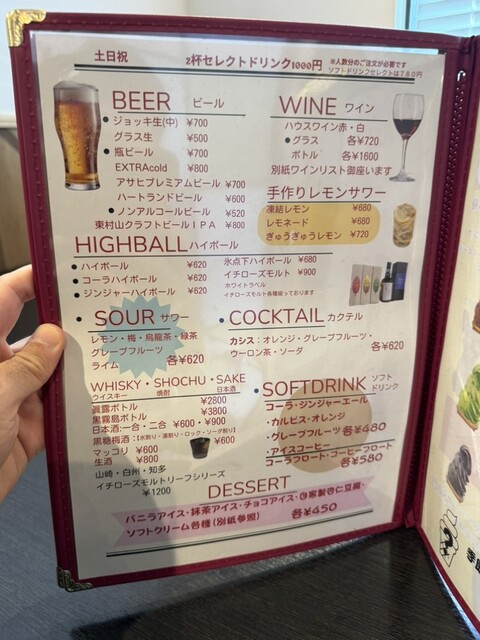 土日祝 2杯セレクトドリンク1000円 ※人数分のご注文が必要です
ソフトドリンクセレクトは780円
BEER ビール
・ジョッキ生(中) ¥700
グラス生 ¥500
・瓶ビール ¥700
EXTRAcold ¥800
アサヒプレミアムビール ¥700
ハートランドビール ¥600
・ノンアルコールビール ¥520
東村山クラフトビールIPA ¥800
WINE ワイン
ハウスワイン赤・白
・グラス 各¥720
ボトル 各¥1600
別紙ワインリスト御座います
手作りレモンサワー
凍結レモン ¥680
レモネード ¥680
ぎゅうぎゅうレモン ¥720
HIGHBALL ハイボール
・ハイボール ¥620
・コーラハイボール ¥620
・ジンジャーハイボール ¥620
氷点下ハイボール ¥680
イチローズモルト ¥900
ホワイトラベル
イチローズモルト各種揃っております
・SOUR サワー
レモン・梅・烏龍茶・緑茶
グレープフルーツ
ライム 各¥620
・COCKTAIL カクテル
カシス：オレンジ・グレープフルーツ・
ウーロン茶・ソーダ 各¥620
WHISKY・SHOCHU・SAKE
ウイスキー 焼酎 日本酒
眞露ボトル ¥2800
黒霧島ボトル ¥3800
日本酒:一合・二合 ¥600・¥900
黒糖梅酒:(水割り・湯割り・ロック・ソーダ割り) ¥600
マッコリ ¥600
生酒 ¥800
山崎・白州・知多
イチローズモルトリーフシリーズ
¥1200
・SOFTDRINK ソフトドリンク
コーラ・ジンジャーエール
・カルピス・オレンジ
・グレープフルーツ 各¥480
・アイスコーヒー
コーラフロート・コーヒーフロート
各¥580
DESSERT
バニラアイス・抹茶アイス・チョコアイス・自家製杏仁豆腐・
ソフトクリーム各種(別紙参照) 各¥450